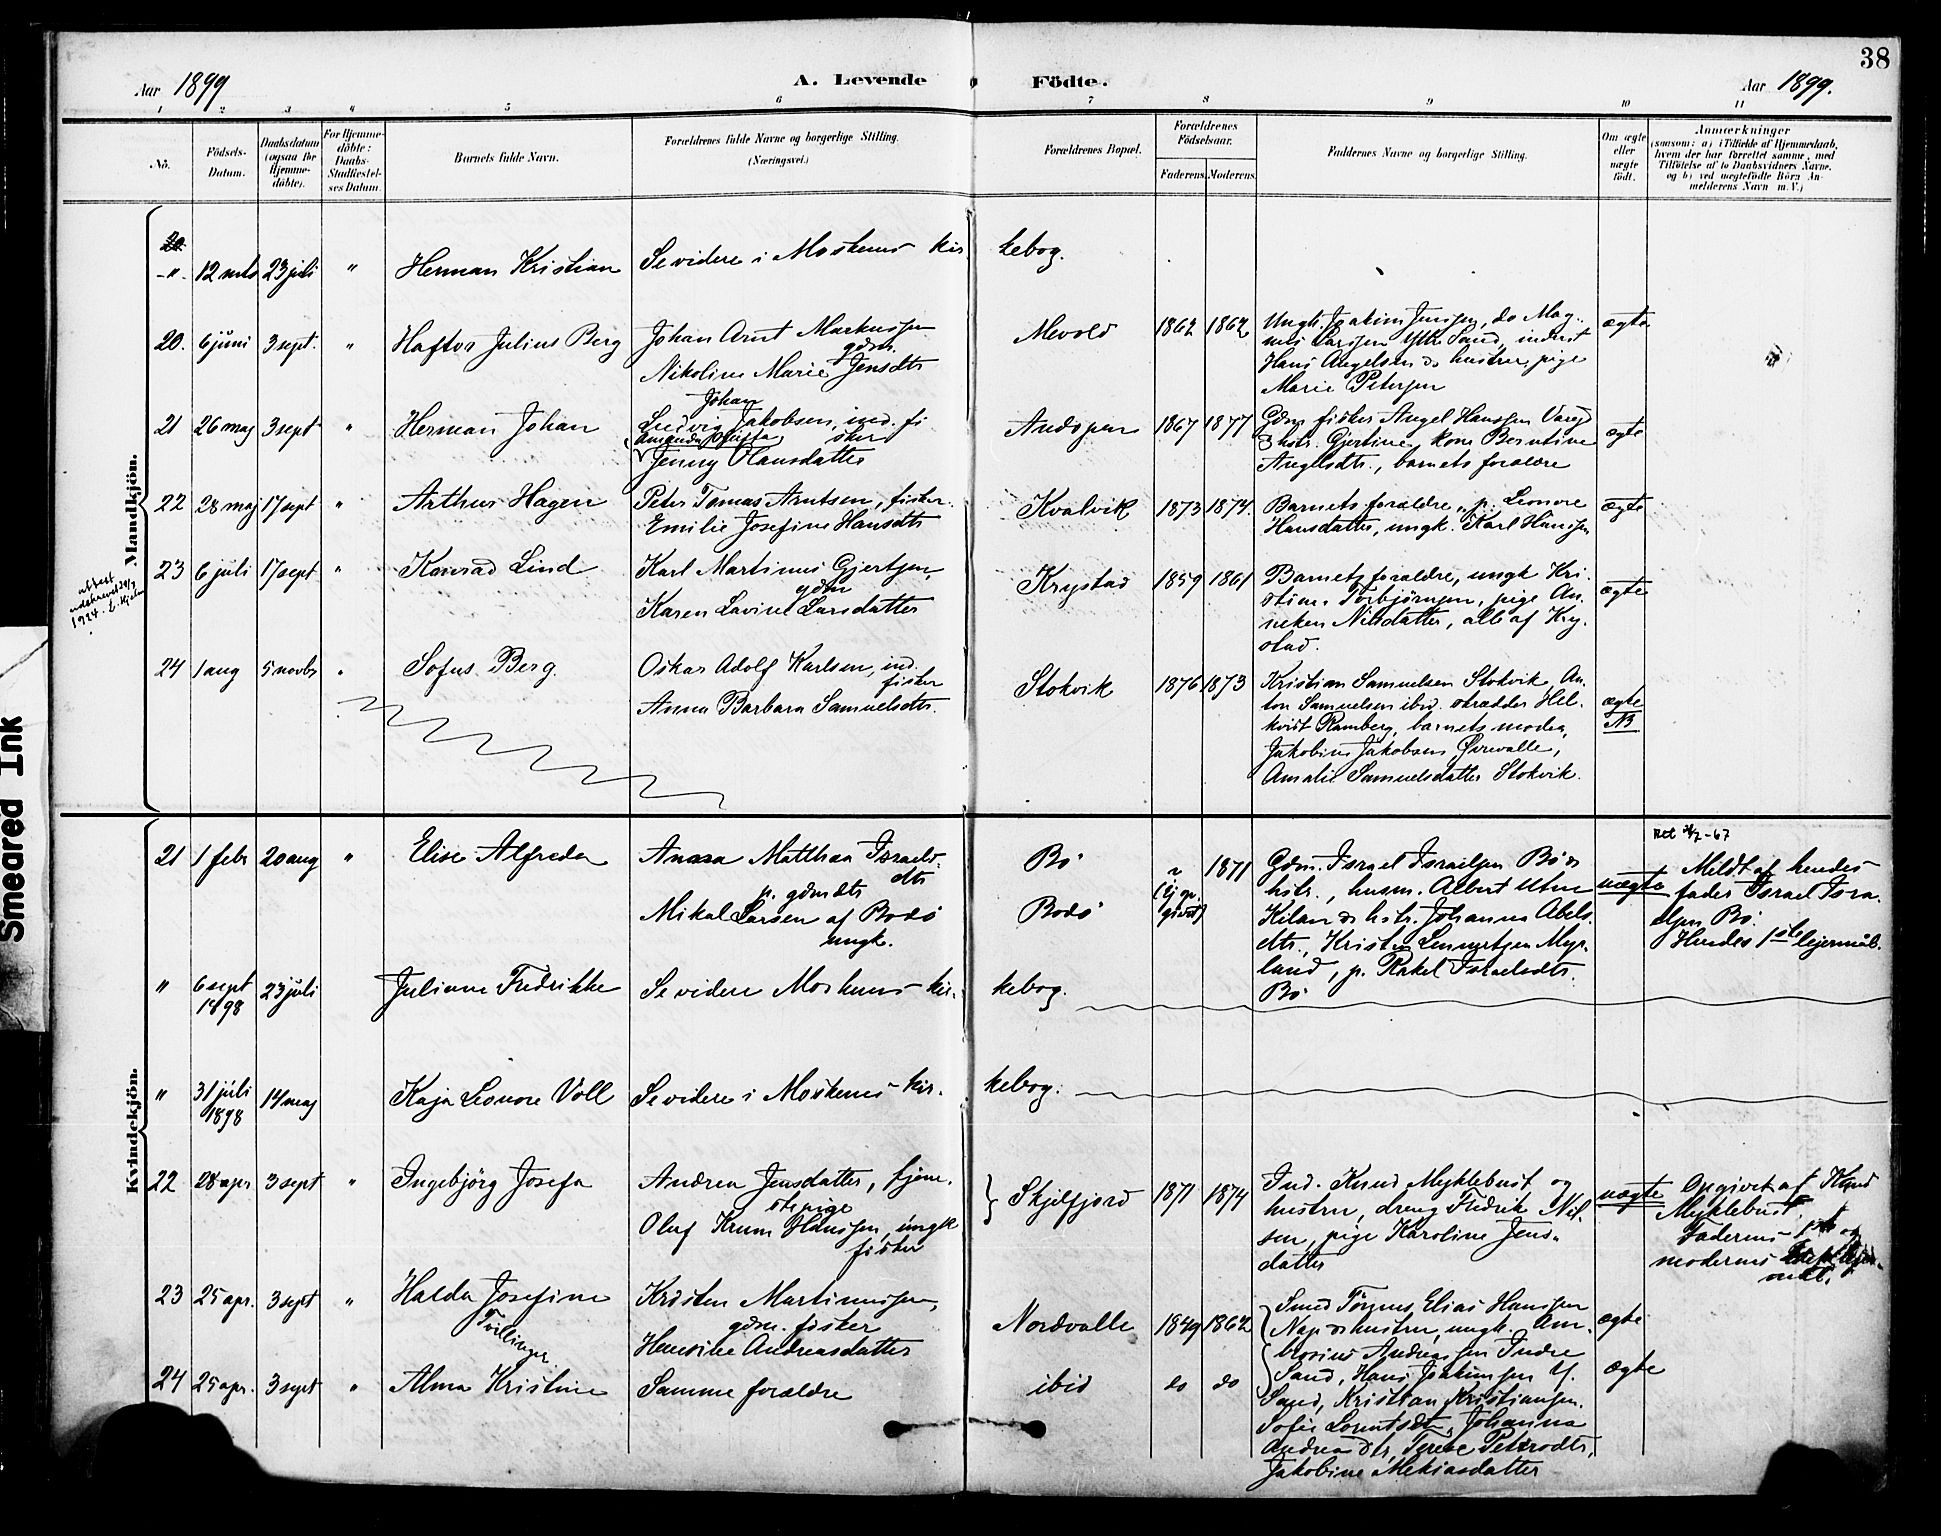 38
Aar 1899
A. Levende Födte.
Aar 1899.
1 2 3 4 5 6 7 8 9 10 11
No.
Födsels-
Datum.
Daabsdatum
(ogsaa for
Hjemme-
döbte).
For Hjemme-
döbte:
Daabs-
Stadfæstel-
ses Datum.
Barnets fulde Navn.
Forældrenes fulde Navne og borgerlige Stilling.
(Næringsvei.)
Forældrenes Bopæl.
Forældrenes
Födselsaar.
Faderens. Moderens.
Faddernes Navne og borgerlige Stilling.
Om ægte
eller
uægte
født.
Anmærkninger
(saasom: a) i Tilfælde af Hjemmedaab,
hvem der har forrettet samme, med
Tilföielse af to Daabsvidners Navne,
og b) ved uægtefödte Börn An-
melderens Navn m. V.)
Mandkjön.
20.
-"- 12 mts 23 juli " Herman Kristian Se videre i Moskenes kirkebog.
20. 6 juni 3 sept. " Haftor Julius Berg
Johan Arnt Markussen
gdm.
Nikoline Marie Jensdtr
Mevold 1862 1862
Ungk. Joakim Jensen, do Mag-
nus Larssen Ytre Sand, inderst
Hans Angelsen & hustru, pige
Marie Petersen
ægte
21 26 maj 3 sept " Herman Johan
Johan
Ludvig Jakobsen, ind. fi
sker
Amanda
Jenny Hansdatter
Andopen 1867 1877
Gdm. fisker Angel Hanssen Vareid
& hstr. Gjertine, kone Berntine
Angelsdtr., barnets forældre
ægte
22 28 maj 17 sept " Arthur Hagen
Peter Tomas Arntsen, fisker.
Emilie Josefine Hansdtr
Kvalvik 1873 1874.
Barnets forældre, p. Leonore
Hansdatter, ungk. Karl Hanssen
ægte
attest
udskrevet 24/7
1924. L. Hjelm
23 6 juli 17 sept " Konrad Lind
Karl Martinus Gjertsen,
gdm
Karen Lavine Larsdatter
Krystad 1859 1861
Barnets forældre, ungk Kri-
stines Torbjörnsen, pige An-
neken Nilsdatter, alle af Kry-
stad.
ægte
24 1 aug 5 novbr " Sofus Berg.
Oskar Adolf Karlsen, ind.
fisker
Anna Barbara Samuelsdtr.
Stokvik 1876 1873
Kristian Samuelsen Stokvik, An-
ton Samuelsen ibid. skrædder Hel-
kvist Ramberg, barnets moder,
Jakobine Jakobsen Övrevalle,
Amalie Samuelsdatter Stokvik.
ægte
NB
Kvindekjön.
21 1 febr 20 aug " Elise Alfreda
Anna Matthea Israels-
dtr
p. gdmdtr
Mikal Larsen af Bodö
ungk.
Bö
Bodö
"
(Ej op-
givet)
1871
Gdm. Israel Israelsen Bö &
hstr., husm. Albert Utne
Kilan & hstr. Johanna Abels-
dtr., Kristen Lennertsen Myr-
land, p. Rakel Israelsdtr.
Bö
uægte
Meldt af hendes
fader Israel Isra-
elsen Bö.
Hendes 1ste lejermål.
" 6 sept
1898 23 juli Juliane Fredrikke Se videre Moskenes kirkebog.
" 31 juli
1898 14 maj Kaja Leonore Voll Se videre i Moskenes kirkebog.
22 28 apr 3 sept " Ingebjörg Josefa
Andrea Jensdatter, tjene-
stepige
Oluf Krum Hanssen, ungk
fisker
Skjelfjord 1871 1874
Ind. Knud Myklebust og
hustru, dreng Fredrik Nil-
sen, pige Karoline Jens-
datter
uægte
Opgivet af Knud
Myklebust.
Faderens 1ste og
moderens
mål.
23 25 apr. 3 sept " Halda Josefine
Tvillinger.
Kristen Martinussen,
gdm. fisker
Hensine Andreasdatter
Nordvalle 1849 1862
Smed Törgnes, Elias Hanssen
Nap & hustru, ungk. Am-
brosius Andreassen Indre
Sand, Hans Joakimsen Y.
Sand, Kristian Kristiansen.
Sofie Lorntsdtr, Johanna
Andreasdtr, Tyrese Petersdtr,
Jakobine Mekiasdatter
ægte
24 25 apr. 3 sept " Alma Kristine Samme forældre ibid do do ægte
Smeared Ink